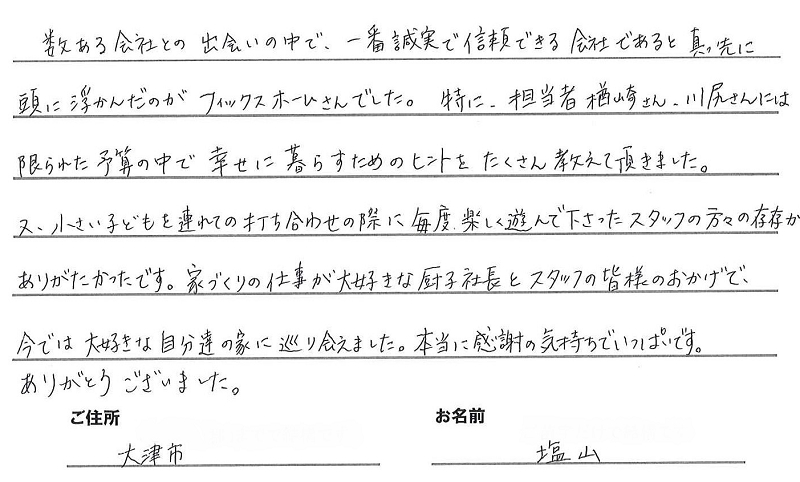 数ある会社との出会いの中で、一番誠実で信頼できる会社であると真っ先に
頭に浮かんだのがフィックスホームさんでした。特に、担当者楢崎さん、川尻さんには
限られた予算の中で幸せに暮らすためのヒントをたくさん教えて頂きました。
又、小さい子どもを連れての打ち合わせの際に毎度、楽しく遊んで下さったスタッフの方々の存存が
ありがたかったです。家づくりの仕事が大好きな厨子社長とスタッフの皆様のおかげで、
今では大好きな自分達の家に巡り会えました。本当に感謝の気持ちでいっぱいです。
ありがとうございました。
ご住所 お名前
大津市 塩山